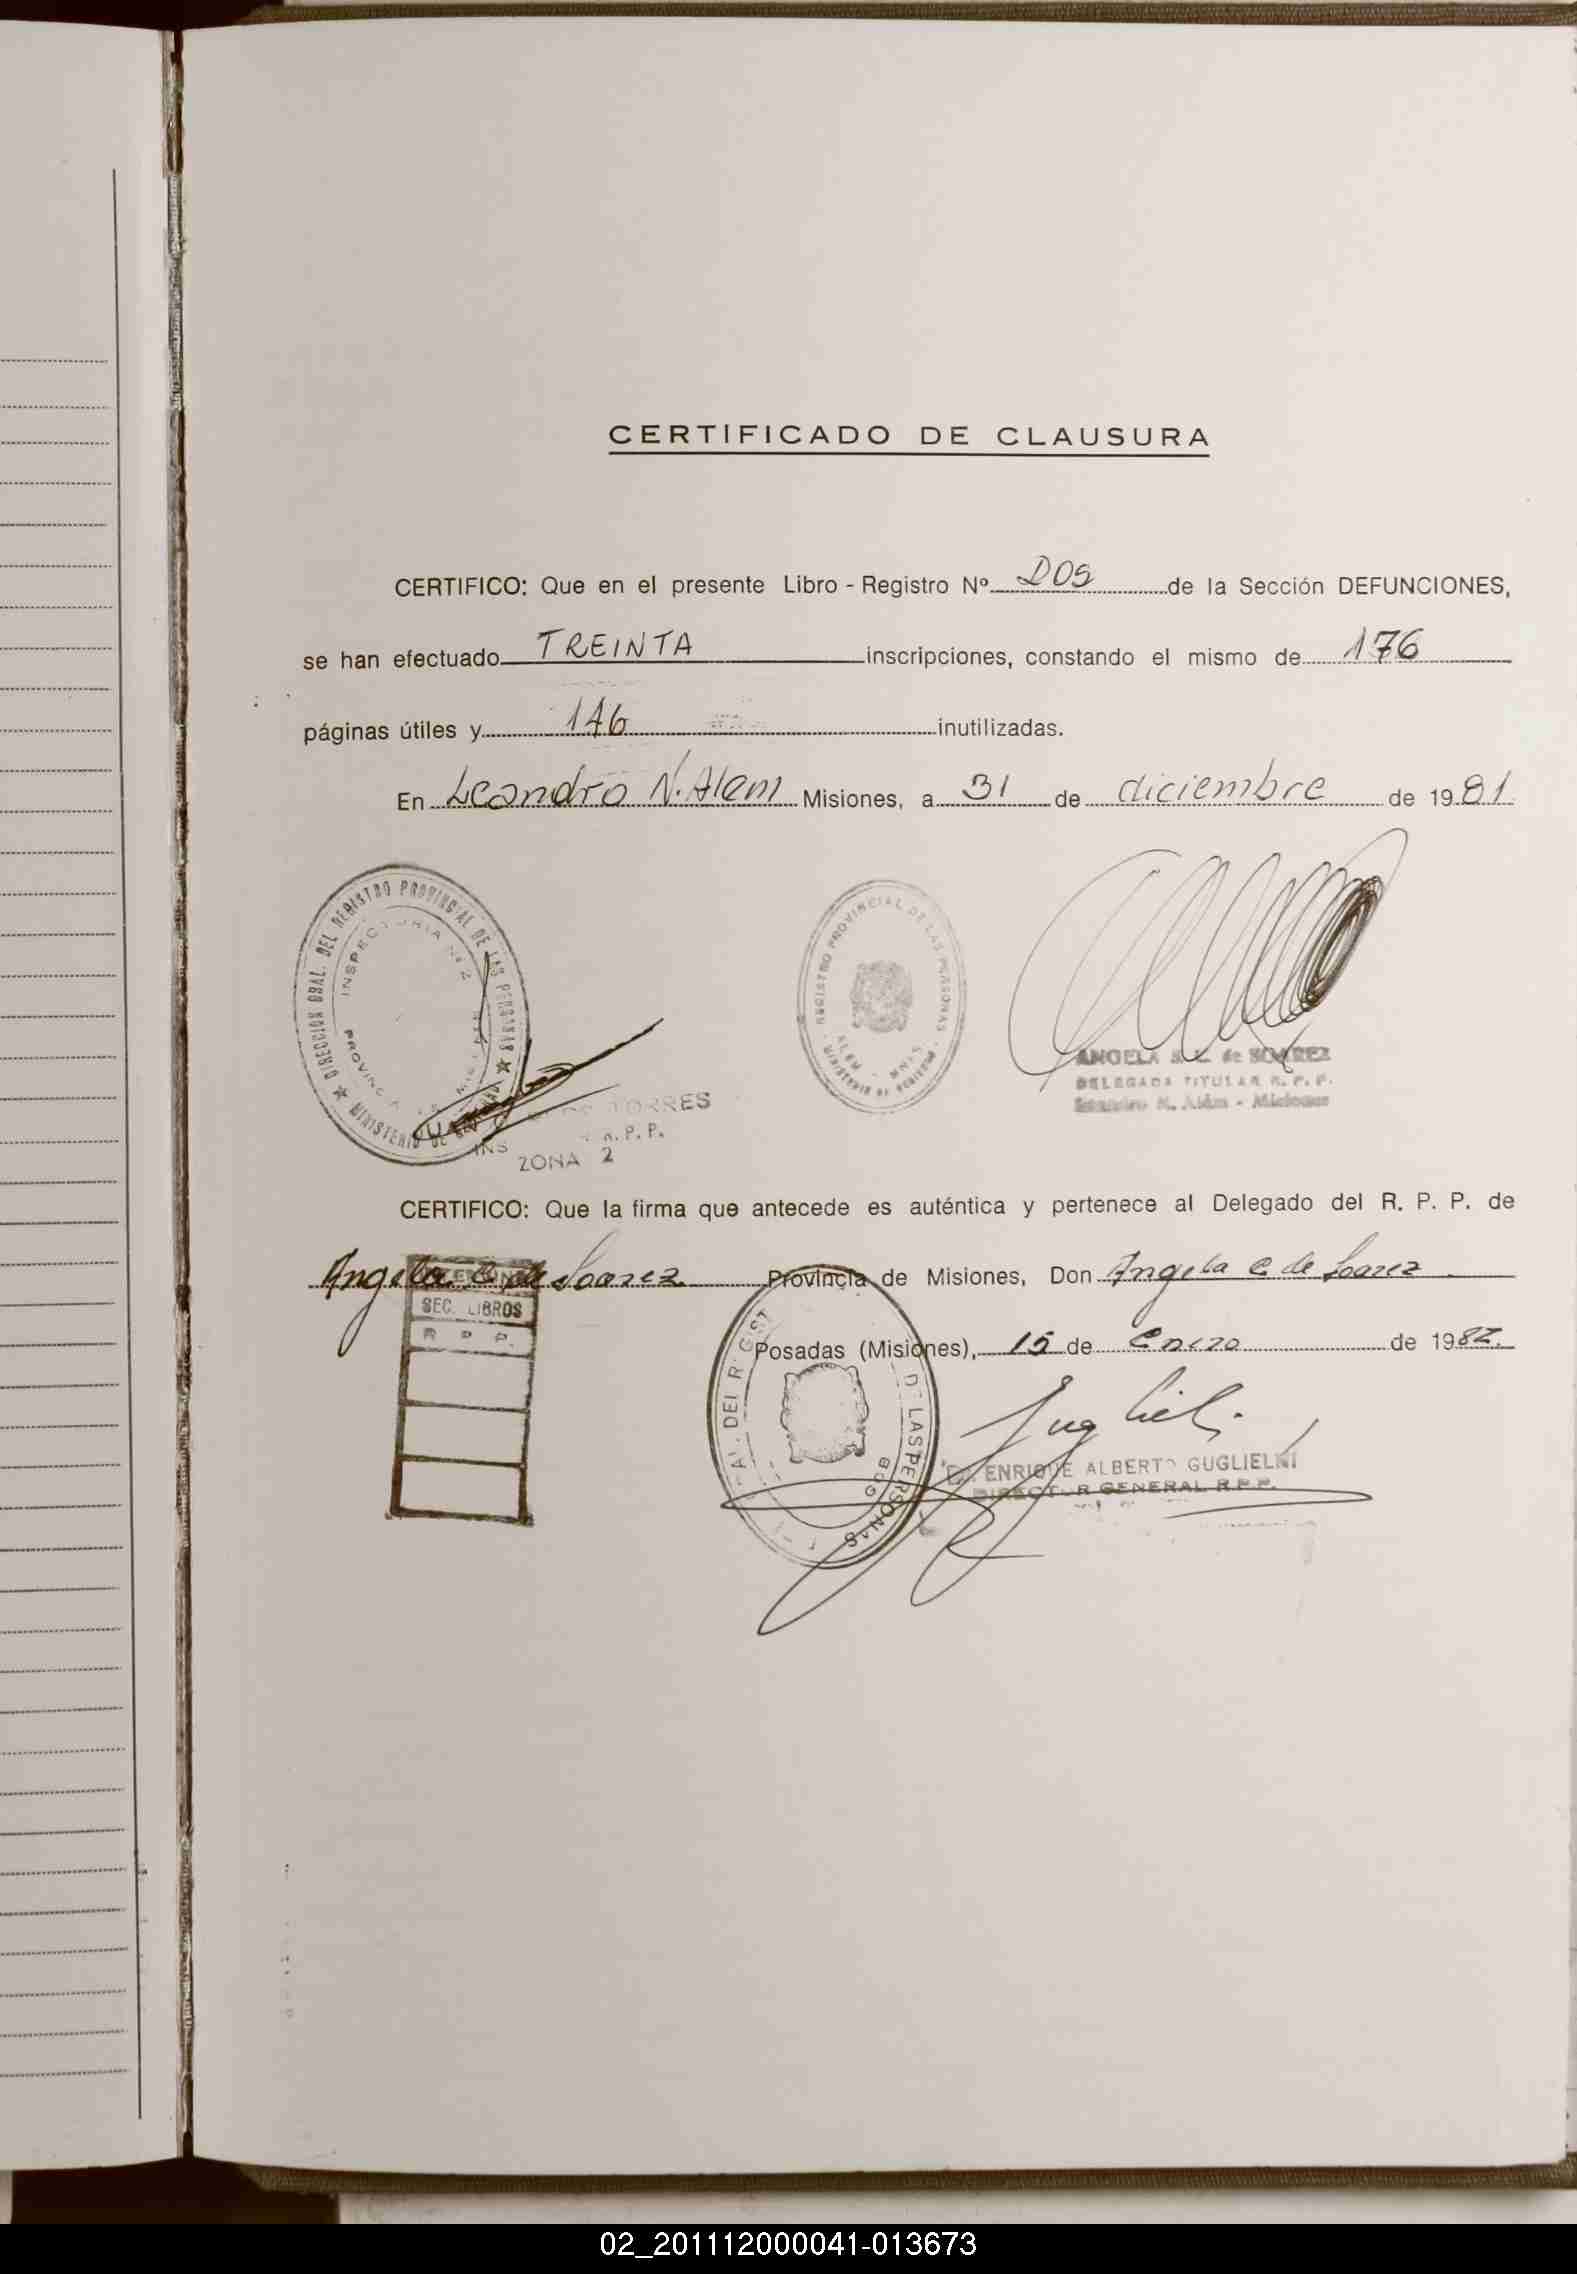 CERTIFICADO DE CLAUSURA
CERTIFICO: Que en el presente Libro - Registro Nº DOS de la Sección DEFUNCIONES,
se han efectuado TREINTA inscripciones, constando el mismo de 176
páginas útiles y 146 inutilizadas.
En Leandro N. Alem Misiones, a 31 de diciembre de 1981
DIRECCION GRAL. DEL REGISTRO PROVINCIAL DE LAS PERSONAS
INSPECTORIA Nº 2
MINISTERIO DE
TORRES
R. P. P.
ZONA 2
REGISTRO PROVINCIAL DE LAS PERSONAS
ALEM - MNES
MINISTERIO DE GOBIERNO
ANGELA de SOAREZ
DELEGADA TITULAR R. P. P.
Leandro N. Além - Misiones
CERTIFICO: Que la firma que antecede es auténtica y pertenece al Delegado del R. P. P. de
Angela C. de Soarez Provincia de Misiones, Don Angela C. de Soarez
Posadas (Misiones), 15 de Enero de 1982.
SEC. LIBROS
R P P.
DEL REGIST DE LAS PERSONAS
GOB
ENRIQUE ALBERTO GUGLIELMI
DIRECTOR GENERAL R.P.P.
02_201112000041-013673